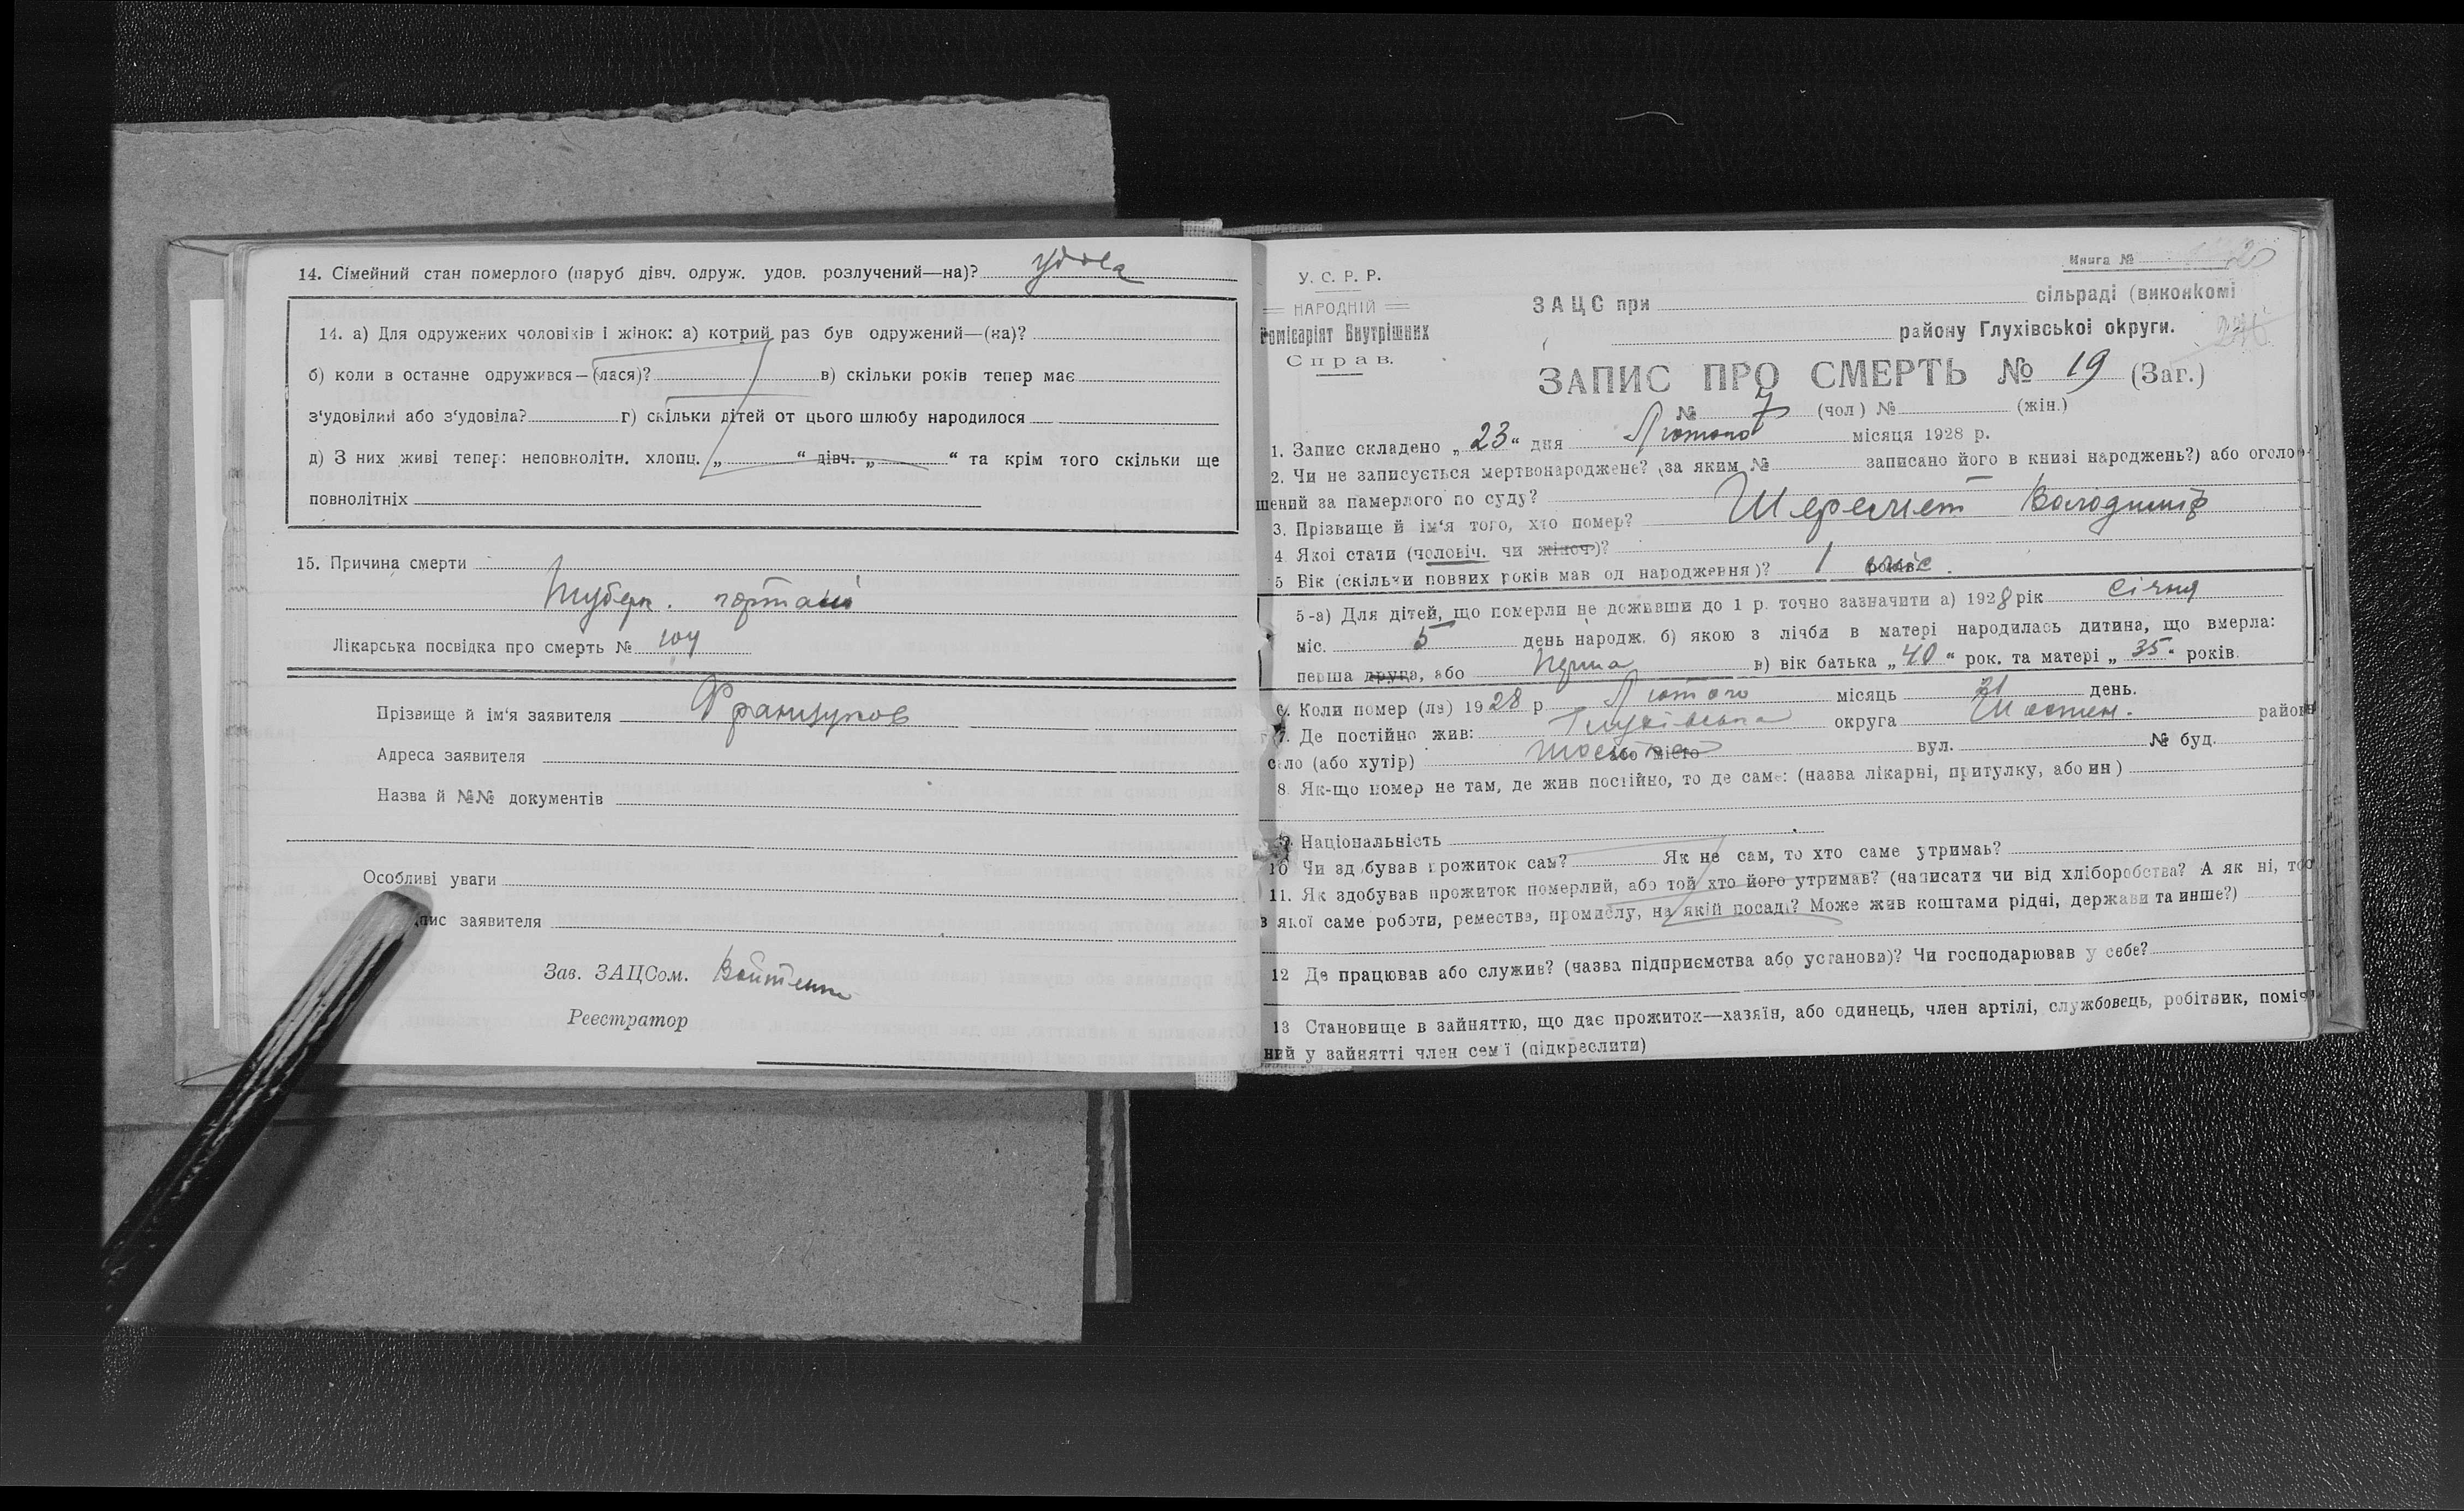 14. Сімейний стан померлого (паруб дівч. одруж. удов. розлучений—на)? удова
14. а) Для одружених чоловіків і жінок: а) котрий раз був одружений—(на)?
б) коли в останне одружився—(лася)? в) скільки років тепер має
з'удовілий або з'удовіла? г) скільки дітей от цього шлюбу народилося
д) З них живі тепер: неповнолітн. хлопц. „ “ дівч. „ “ та крім того скільки ще
повнолітніх
15. Причина смерти
Туберк. гортані
Лікарська посвідка про смерть № 104
Прізвище й ім'я заявителя Французов
Адреса заявителя
Назва й №№ документів
Особливі уваги
пис заявителя
Зав. ЗАЦСом. Войтенко
Реєстратор
Книга №
У. С. Р. Р.
НАРОДНІЙ
Комісаріят Внутрішних
Справ.
ЗАЦС при сільраді (виконкомі
району Глухівської округи.
ЗАПИС ПРО СМЕРТЬ № 19 (Заг.)
№ 7 (чол) № (жін.)
1. Запис складено „ 23 “ дня Лютого місяця 1928 р.
2. Чи не записується мертвонароджене? (за яким № записано його в книзі народжень?) або оголо-
шений за памерлого по суду?
3. Прізвище й ім'я того, хто помер? Шеремет Володимир
4 Якої стати (чоловіч. чи жіноч)?
5 Вік (скільки повних років мав од народження)? 1 міс.
5-а) Для дітей, що померли не доживши до 1 р. точно зазначити а) 1928 рік січня
міс. 5 день народж. б) якою з лічби в матері народилась дитина, що вмерла:
перша друга, або перша в) вік батька „ 40 “ рок. та матері „ 35 “ років
6. Коли помер (ла) 1928 р Лютого місяць 21 день.
7. Де постійно жив: Глухівська округа Шостен. район
село (або хутір) або місто Шостка вул. № буд.
8. Як-що помер не там, де жив постійно, то де саме: (назва лікарні, притулку, або ин)
9. Національність
10 Чи здобував прожиток сам? Як не сам, то хто саме утримав?
11. Як здобував прожиток померлий, або той хто його утримав? (написати чи від хліборобства? А як ні, то
з якої саме роботи, ремества, промислу, на якій посаді? Може жив коштами рідні, держави та инше?)
12 Де працював або служив? (назва підприємства або установи)? Чи господарював у себе?
13 Становище в зайняттю, що дає прожиток—хазяїн, або одинець, член артілі, службовець, робітник, поміч
ний у зайнятті член сем'ї (підкреслити)